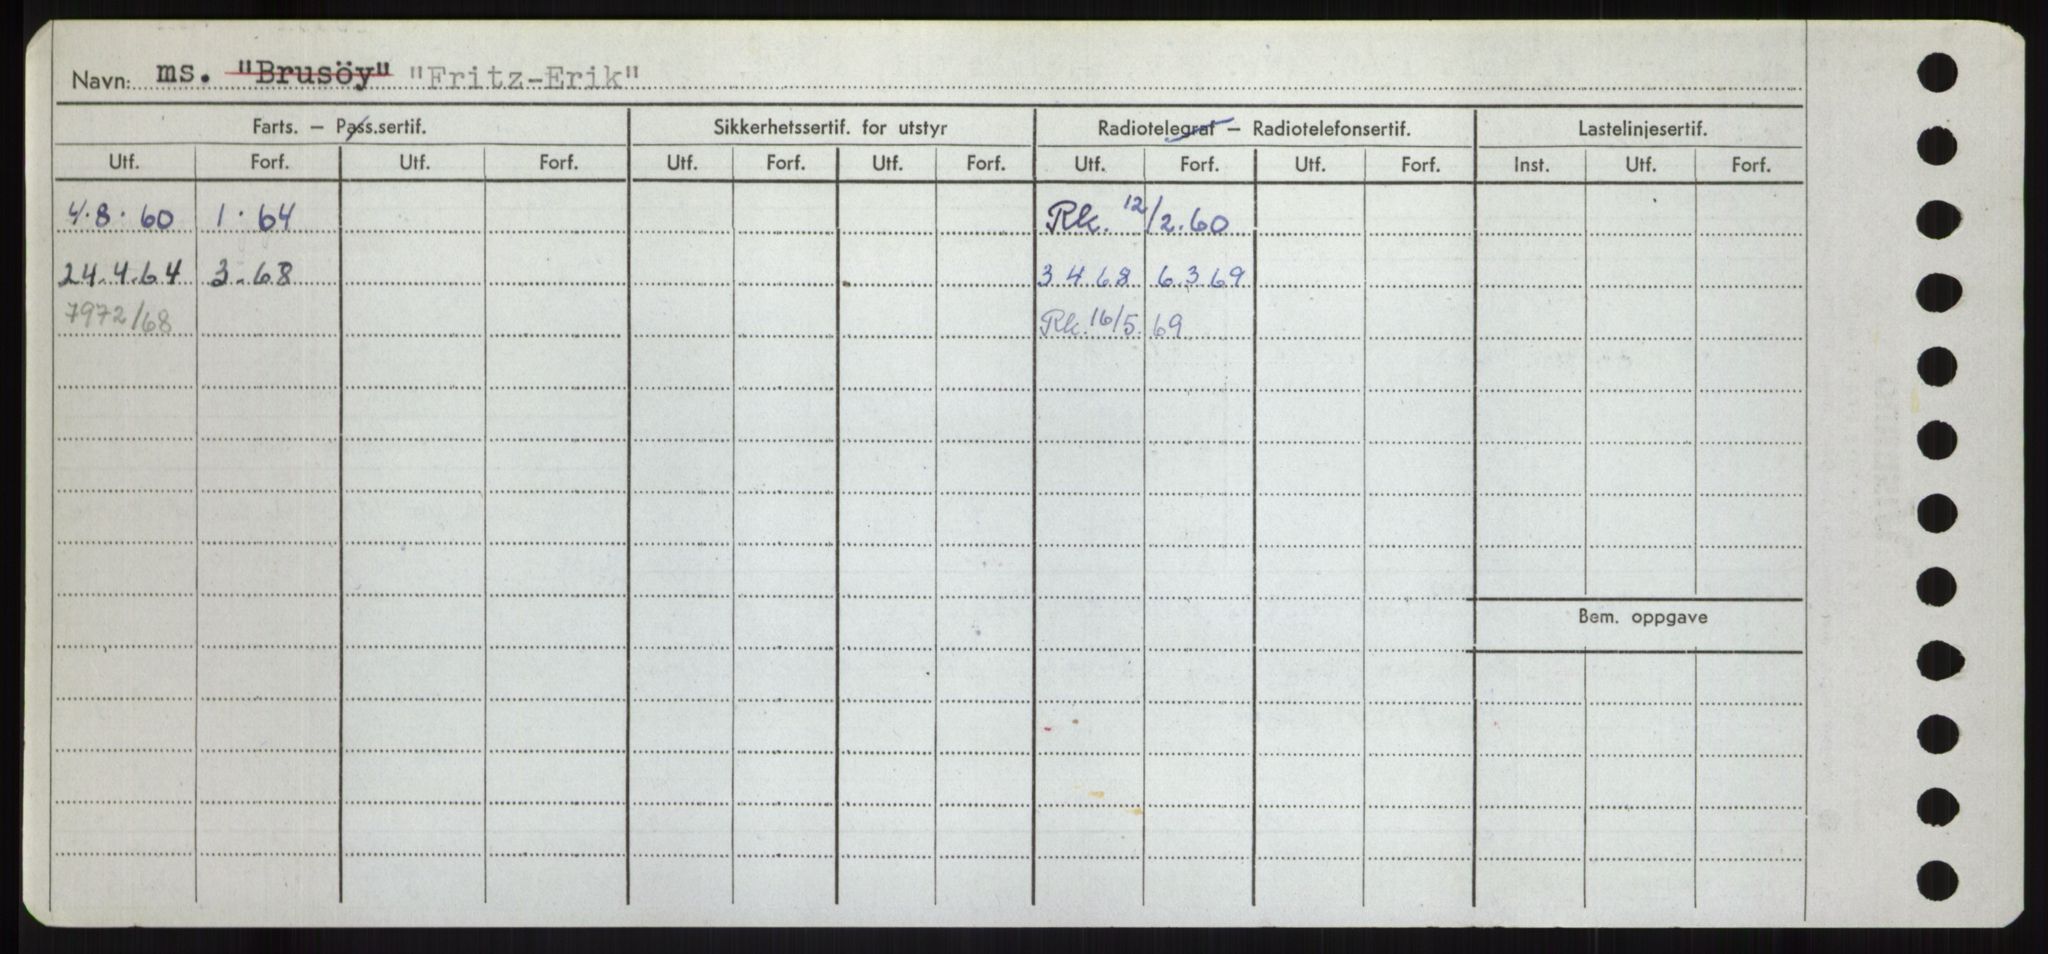 Navn: ms. "Brusöy" "Fritz-Erik"
Farts. – Pass.sertif. Sikkerhetssertif. for utstyr Radiotelegraf – Radiotelefonsertif. Lastelinjesertif.
Utf. Forf. Utf. Forf. Utf. Forf. Utf. Forf. Utf. Forf. Utf. Forf. Inst. Utf. Forf.
4.8.60 1.64 Rk. 12/2.60
24.4.64 3.68 3 4 68 6.3 69
7972/68 Rk. 16/5.69
Bem. oppgave